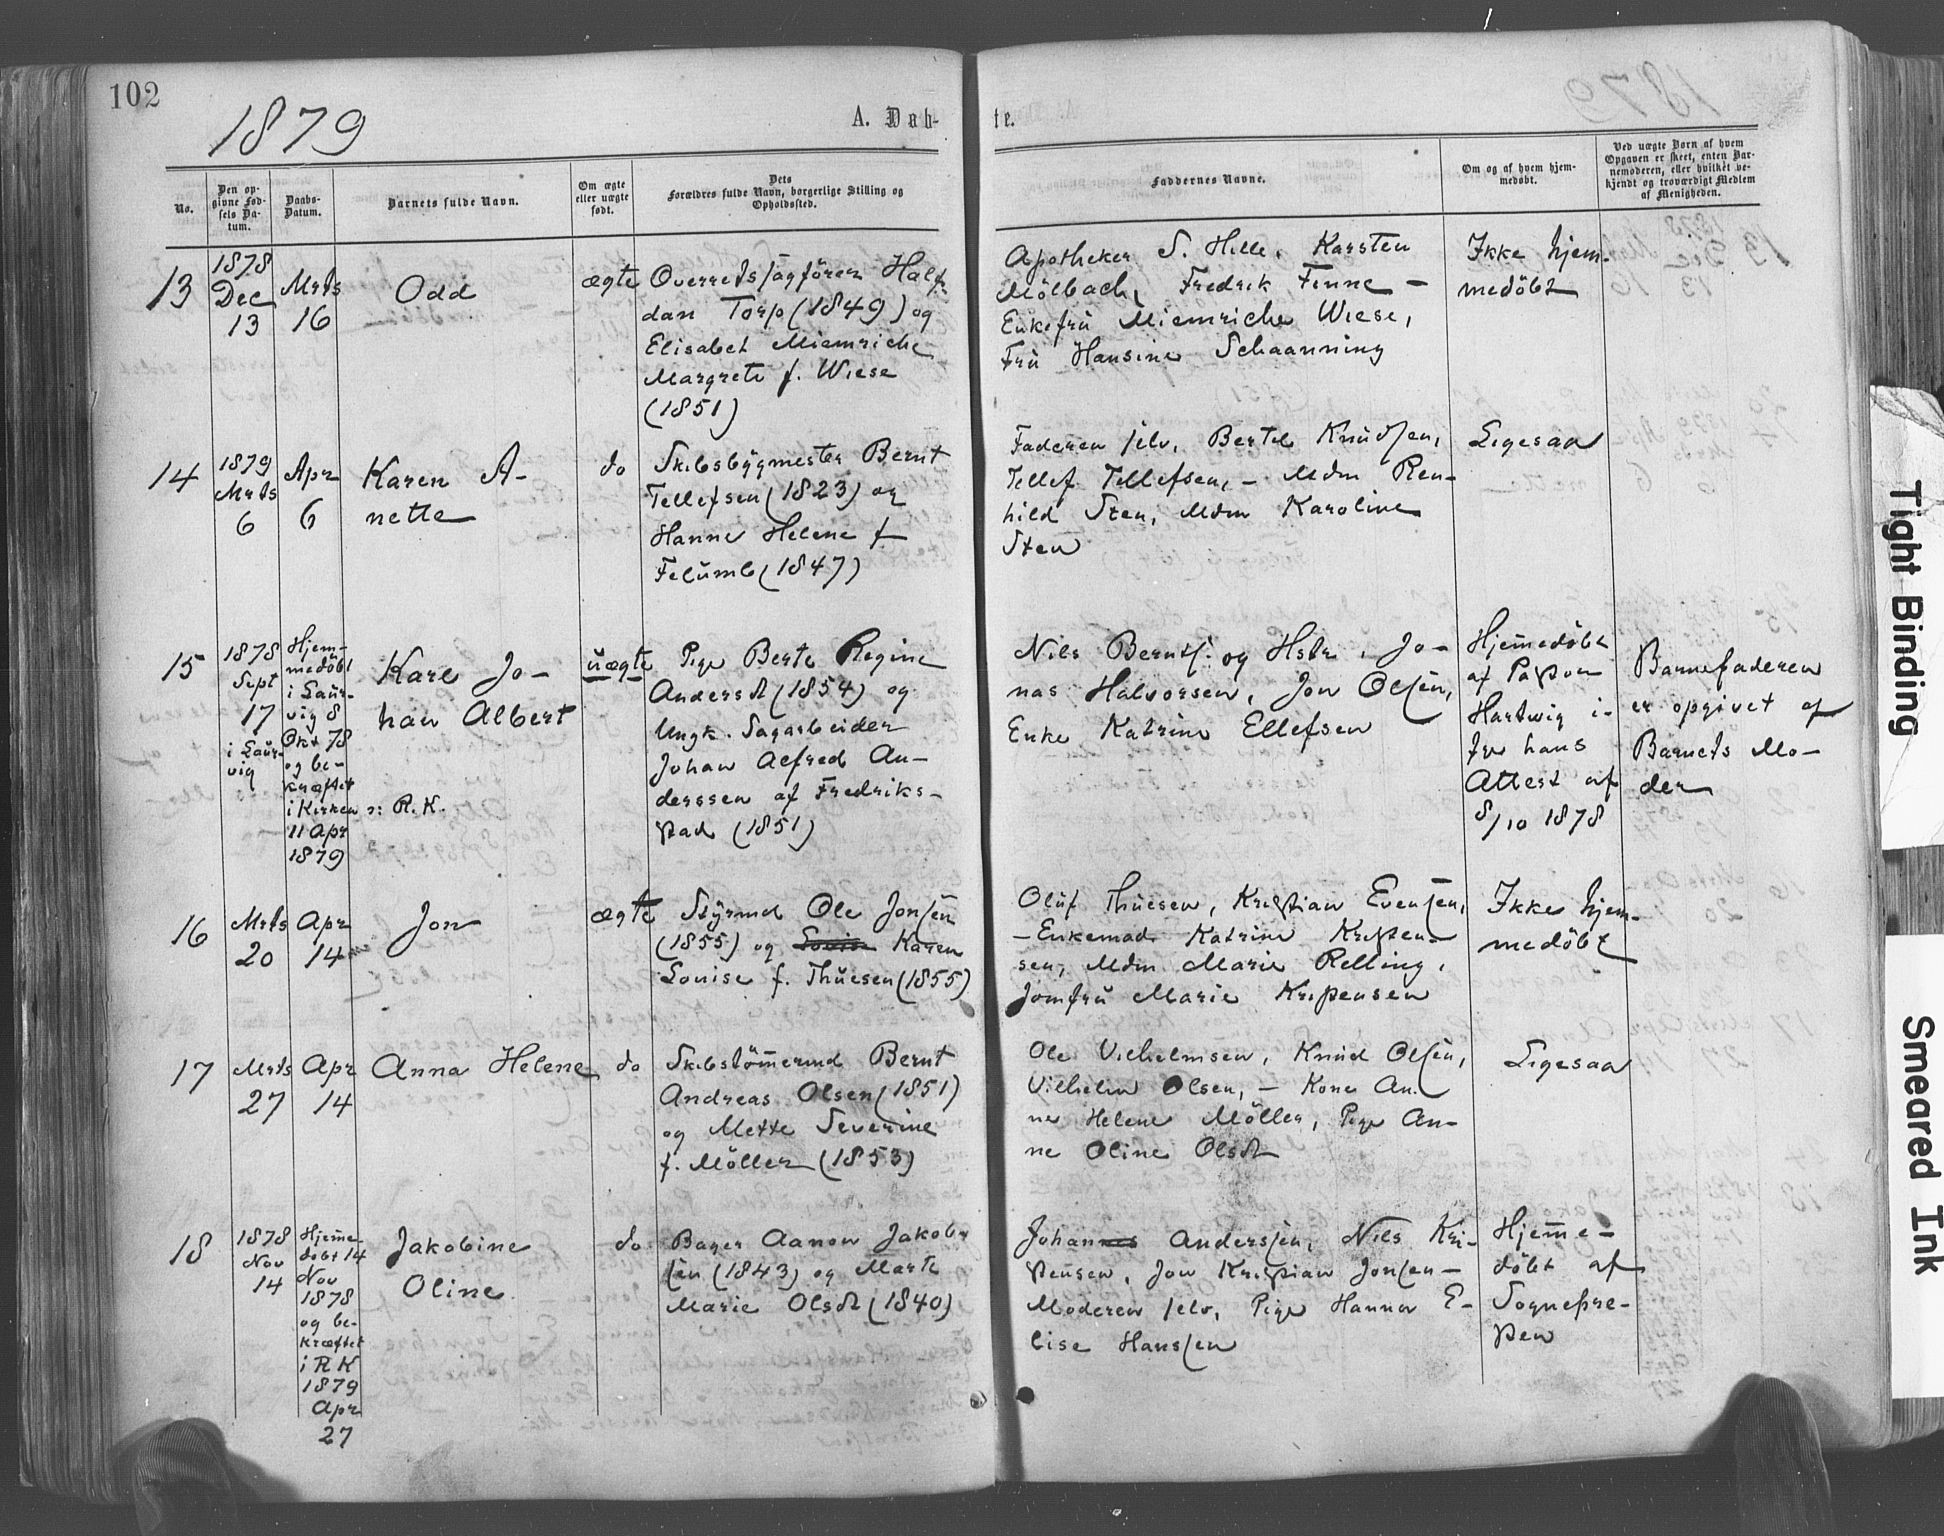 102
1879
A. Døb-
te.
No.
Den op-
givne Fød-
sels Da-
tum.
Daabs-
Datum.
Barnets fulde Navn.
Om ægte
eller uægte
født.
Dets
Forældres fulde Navn, borgerlige Stilling og
Opholdssted.
Faddernes Navne.
Om og af hvem hjem-
medøbt.
Ved uægte Børn af hvem
Opgaven er skeet, enten Bar-
nemoderen, eller hvilket be-
kjendt og troværdigt Medlem
af Menigheden.
13
1878
Dec
13
Mrts
16
Odd
ægte
Overretssagfören Half-
dan Torp (1849) og
Elisabet Miemriche
Margrete f. Wiese
(1851)
Apotheker S. Hille, Karsten
Mölbach, Fredrik Finne -
Enkefru Miemriche Wiese,
Fru Hansine Schaanning
Ikke hjem-
medöbt
14
1879
Mrts
6
Apr
6
Karen A-
nette
do
Skibsbygmester Bernt
Tellefsen (1823) og
Hanne Helene f
Felumb (1847)
Faderen selv, Bertel Knudsen,
Tellef Tellefsen, - Mdm Ren-
hild Sten, Mdm Karoline
Sten
Ligesaa
15
1878
Sept
17
i Laur-
vig
Hjem-
medöbt
i Laur-
vig 8
Okt 78
og be-
kræftet
i Kirken ɔ: R.K.
11 Apr
1879
Karl Jo-
han Albert
uægte
Pige Berte Regine
Andersdt (1854) og
Ungk. Sagarbeider
Johan Alfred An-
derssen af Fredriks-
stad (1851)
Nils Bernts. og Hstr, Jo-
nas Halvorsen, Jon Olsen,
Enke Katrine Ellefsen
Hjemmedöbt
af Pastor
Hartwig i-
fø hans
Attest af
8/10 1878
Barnefaderen
er opgivet af
Barnets Mo-
der
16
Mrts
20
Apr
14
Jon
ægte
Styrmd Ole Jonsen
(1855) og Louise Karen
Louise f. Thuesen (1855)
Oluf Thuesen, Kristian Evensen,
- Enkemad. Katrine Kristen-
sen, Mdm Marie Relling,
Jomfru Marie Kristensen
Ikke hjem-
medöbt
17
Mrts
27
Apr
14
Anna Helene
do
Skibstömmermd Bernt
Andreas Olsen (1851)
og Mette Severine
f. Möller (1853)
Ole Vilhelmsen, Knud Olsen,
Vilhelm Olsen, - Kone An-
ne Helene Möller, Pige An-
ne Oline Olsdt
Ligesaa
18
1878
Nov
14
Hjemme-
döbt 14
Nov
1878
og be-
kræftet
i R K
1879
Apr
27
Jakobine
Oline
do
Bager Aanon Jakob-
sen (1843) og Marte
Marie Olsdt (1840)
Johannes Anderssen, Nils Kri-
stensen, Jon Kristian Jonsen -
Moderen selv, Pige Hanna E-
lise Hanssen
Hjemme-
döbt af
Sognepre-
sten
Tight Binding
Smeared Ink